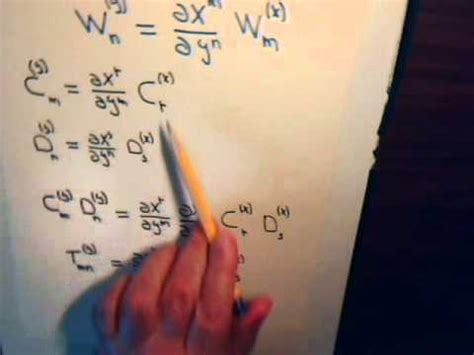 W_n^(y) = ∂x^m/∂y^n W_m^(x)
C_m^(y) = ∂x^r/∂y^m C_r^(x)
D_n^(y) = ∂x^s/∂y^n D_s^(x)
C_m^(y) D_n^(y) = ∂x^r/∂y^m C_r^(x) D_s^(x)
T_mn^(y) =